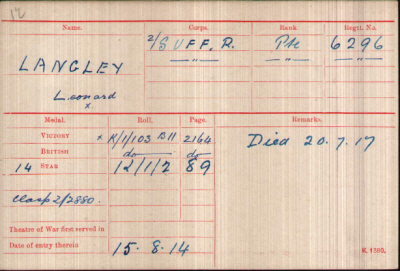 12
Name. Corps. Rank. Regtl. No.
2/SUFF. R. Pte 6296
LANGLEY — " — — " —
Leonard
x
Medal. Roll. Page. Remarks.
VICTORY x K/1/103 B11 2164 Died 20.7.17
BRITISH do do
14 STAR 12/1/2 89
Clasp 2/2880.
Theatre of War first served in
Date of entry therein 15.8.14
K. 1380.